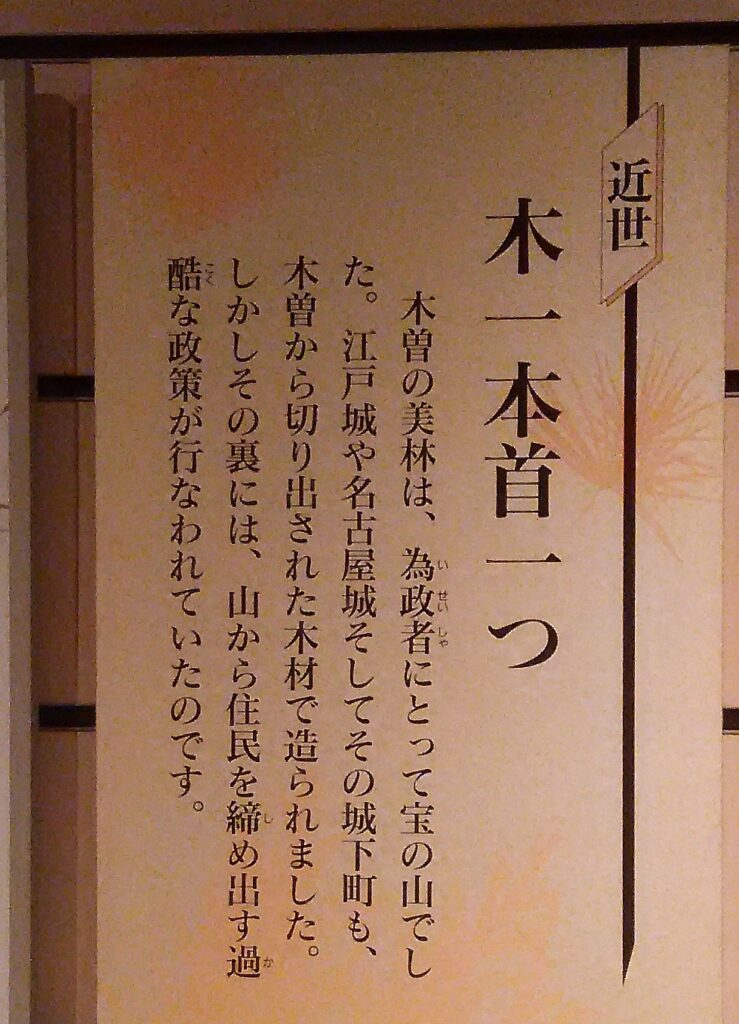 近世
木一本首一つ
木曽の美林は、為政者にとって宝の山でし
た。江戸城や名古屋城そしてその城下町も、
木曽から切り出された木材で造られました。
しかしその裏には、山から住民を締め出す過
酷な政策が行なわれていたのです。
いせいしゃ
し
か
こく